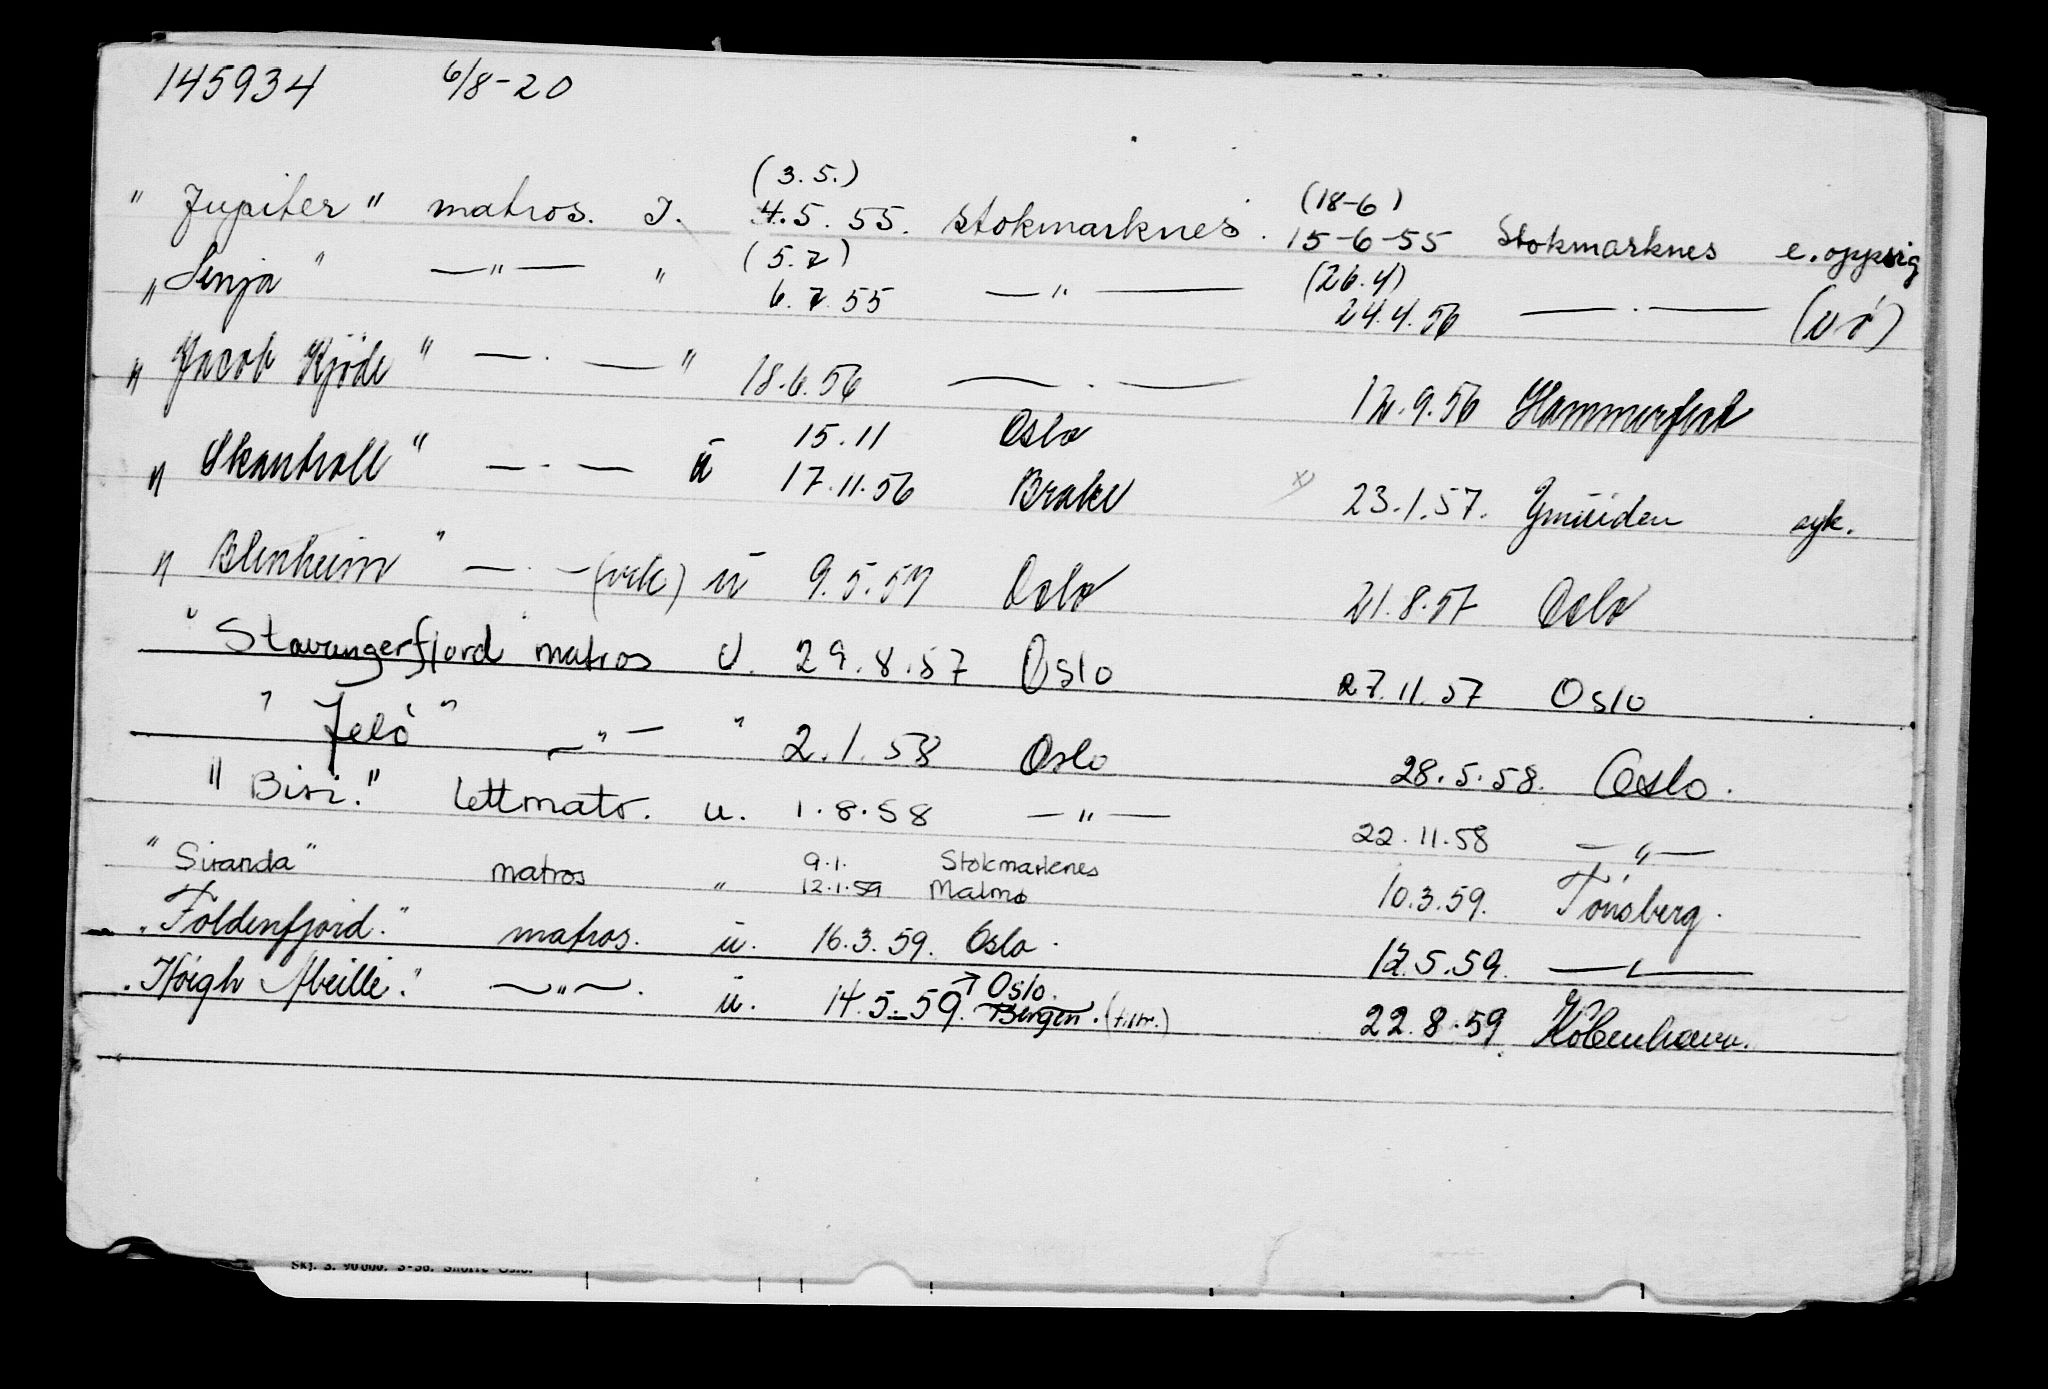 145934 6/8-20
(3.5.) (18-6)
"Jupiter" matros. I. 4.5.55. Stokmarknes. 15-6-55 Stokmarknes e. oppsig
(5.7) (26.4)
"Senja" —"— " 6.7.55 —"— 24.4.56 —.— (vö)
"Jacob Kjöde" —.— " 18.6.56 —.— 12.9.56 Hammerfest
15.11 Oslo
"Skantroll" —.— ü 17.11.56 Brake x) 23.1.57. Ymüiden syk.
"Blenheim" —.— (vik) ü 9.5.57 Oslo 21.8.57 Oslo
"Stavangerfjord matros U. 29.8.57 Oslo 27.11.57 Oslo
"Jelö" —"— " 2.1.58 Oslo 28.5.58. Oslo.
"Biri." Lettmatr. u. 1.8.58 —"— 22.11.58 —"—
9.1. Stokmarknes
"Siranda" matros " 12.1.59 Malmø 10.3.59. Tönsberg.
"Foldenfjord." matros. ü. 16.3.59. Oslo. 12.5.59. —"—
→ Oslo.
"Höigh Abeille." —"—. ü. 14.5-59. Bergen. (tiltr.) 22.8.59. Köbenhavn.
Skj. 3. 90000. 3-56.